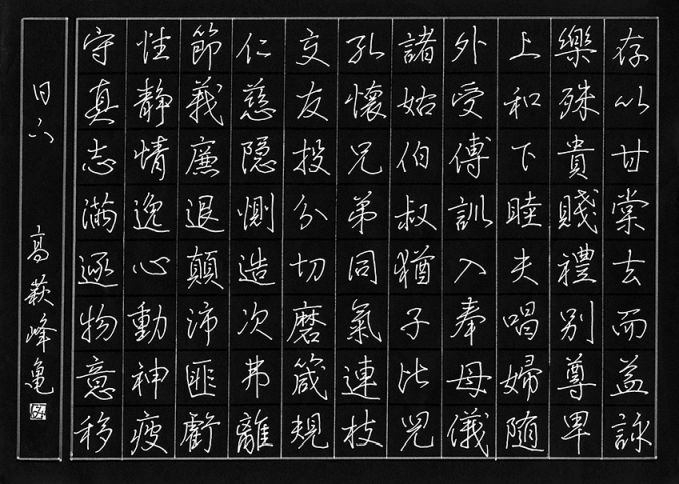 存以甘棠去而益詠
樂殊貴賤禮別尊卑
上和下睦夫唱婦随
外受傅訓入奉母儀
諸姑伯叔猶子比児
孔懐兄弟同氣連枝
交友投分切磨箴規
仁慈隠惻造次弗離
節義廉退顛沛匪虧
性静情逸心動神疲
守真志満逐物意移
高萩峰亀